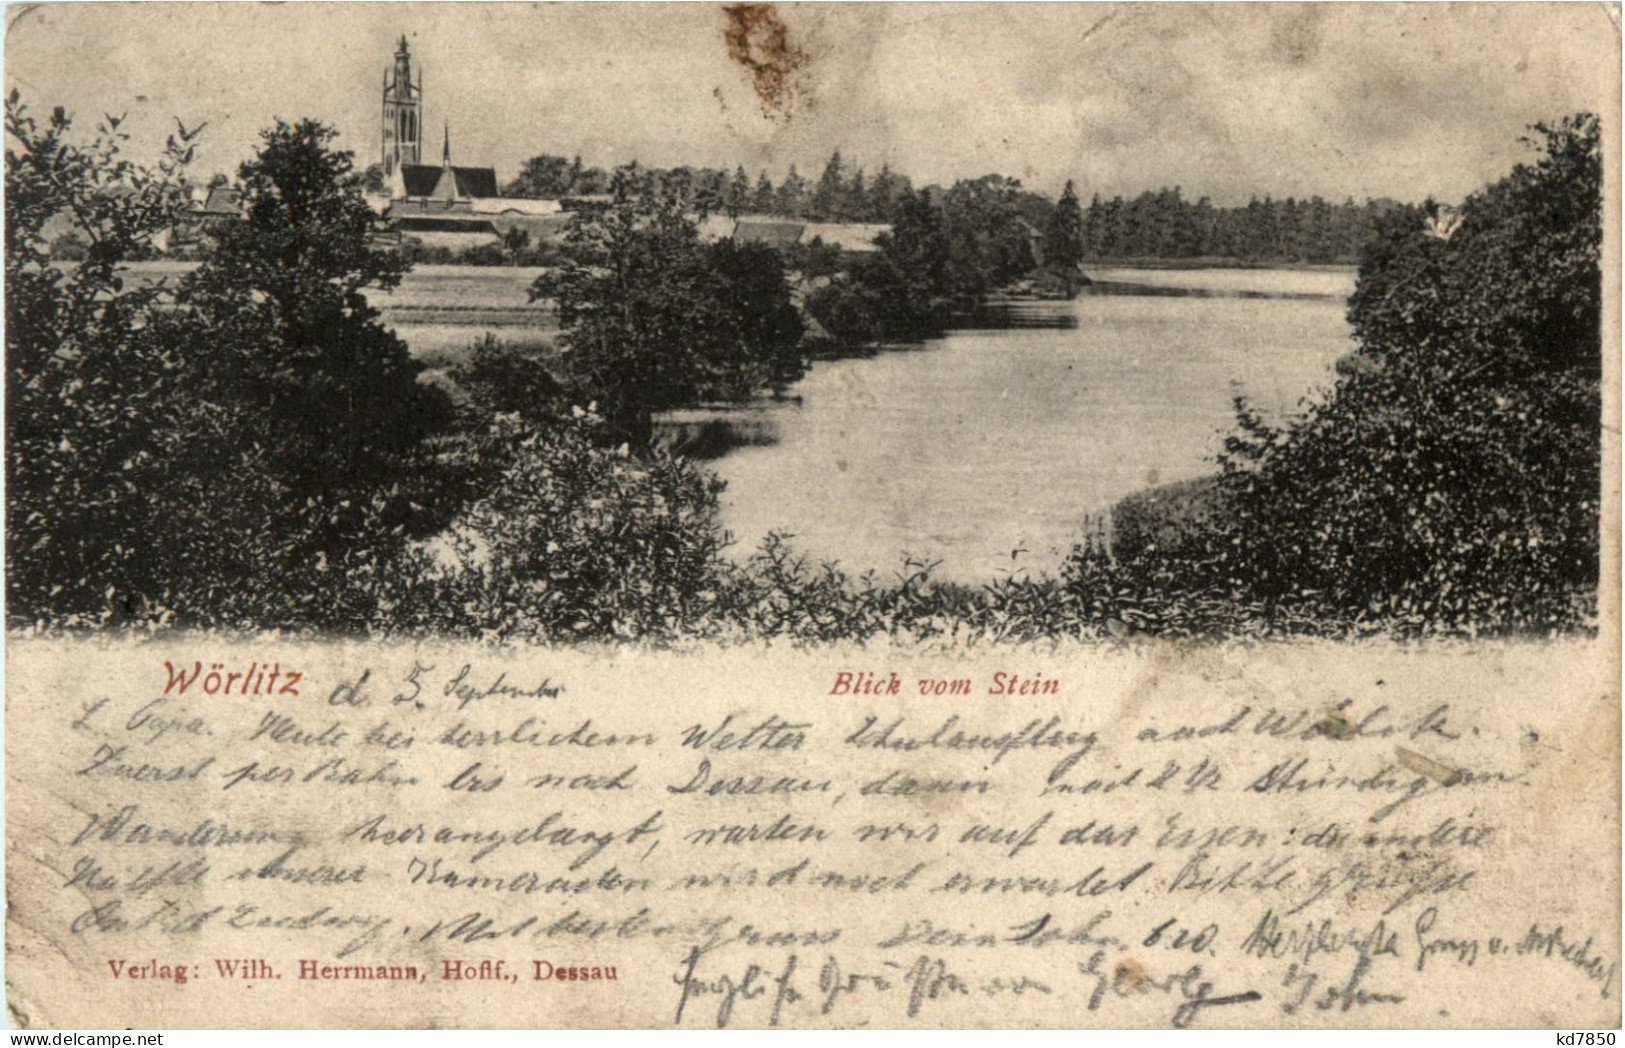 Wörlitz d 5. September
Blick vom Stein
L. Papa. Heute bei herrlichem Wetter Schulausflug nach Wörlitz.
Zuerst per Bahn bis nach Dessau, dann nach 2 1/2 Stündigen
Wanderung herangelangt, warten wir auf das Essen: die andere
Hälfte unserer Kameraden wird noch erwartet. Bitte grüsse
Ludwig. Mit besten Gruss Dein Sohn Herzlichste Gruss v.
Verlag: Wilh. Herrmann, Hoflf., Dessau
Grüsse von Georg John
delcampe.net
kd7850